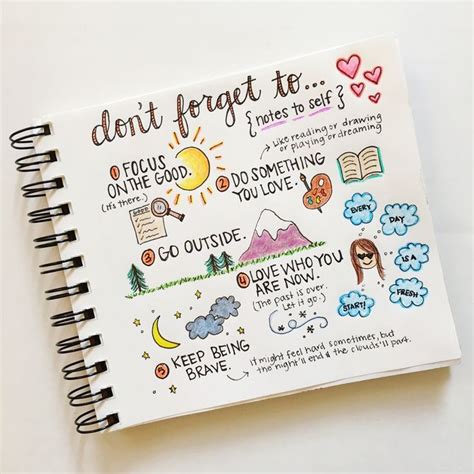 don't forget to...
{notes to self}
Like reading or drawing
or playing or dreaming
① FOCUS
ON THE GOOD.
(It's there.)
② DO SOMETHING
YOU LOVE.
③ GO OUTSIDE.
④ LOVE WHO YOU
ARE NOW.
(The past is over.
Let it go.)
EVERY
DAY
IS A
FRESH
START!
⑤ KEEP BEING
BRAVE.
It might feel hard sometimes, but
the night'll end & the clouds'll part.